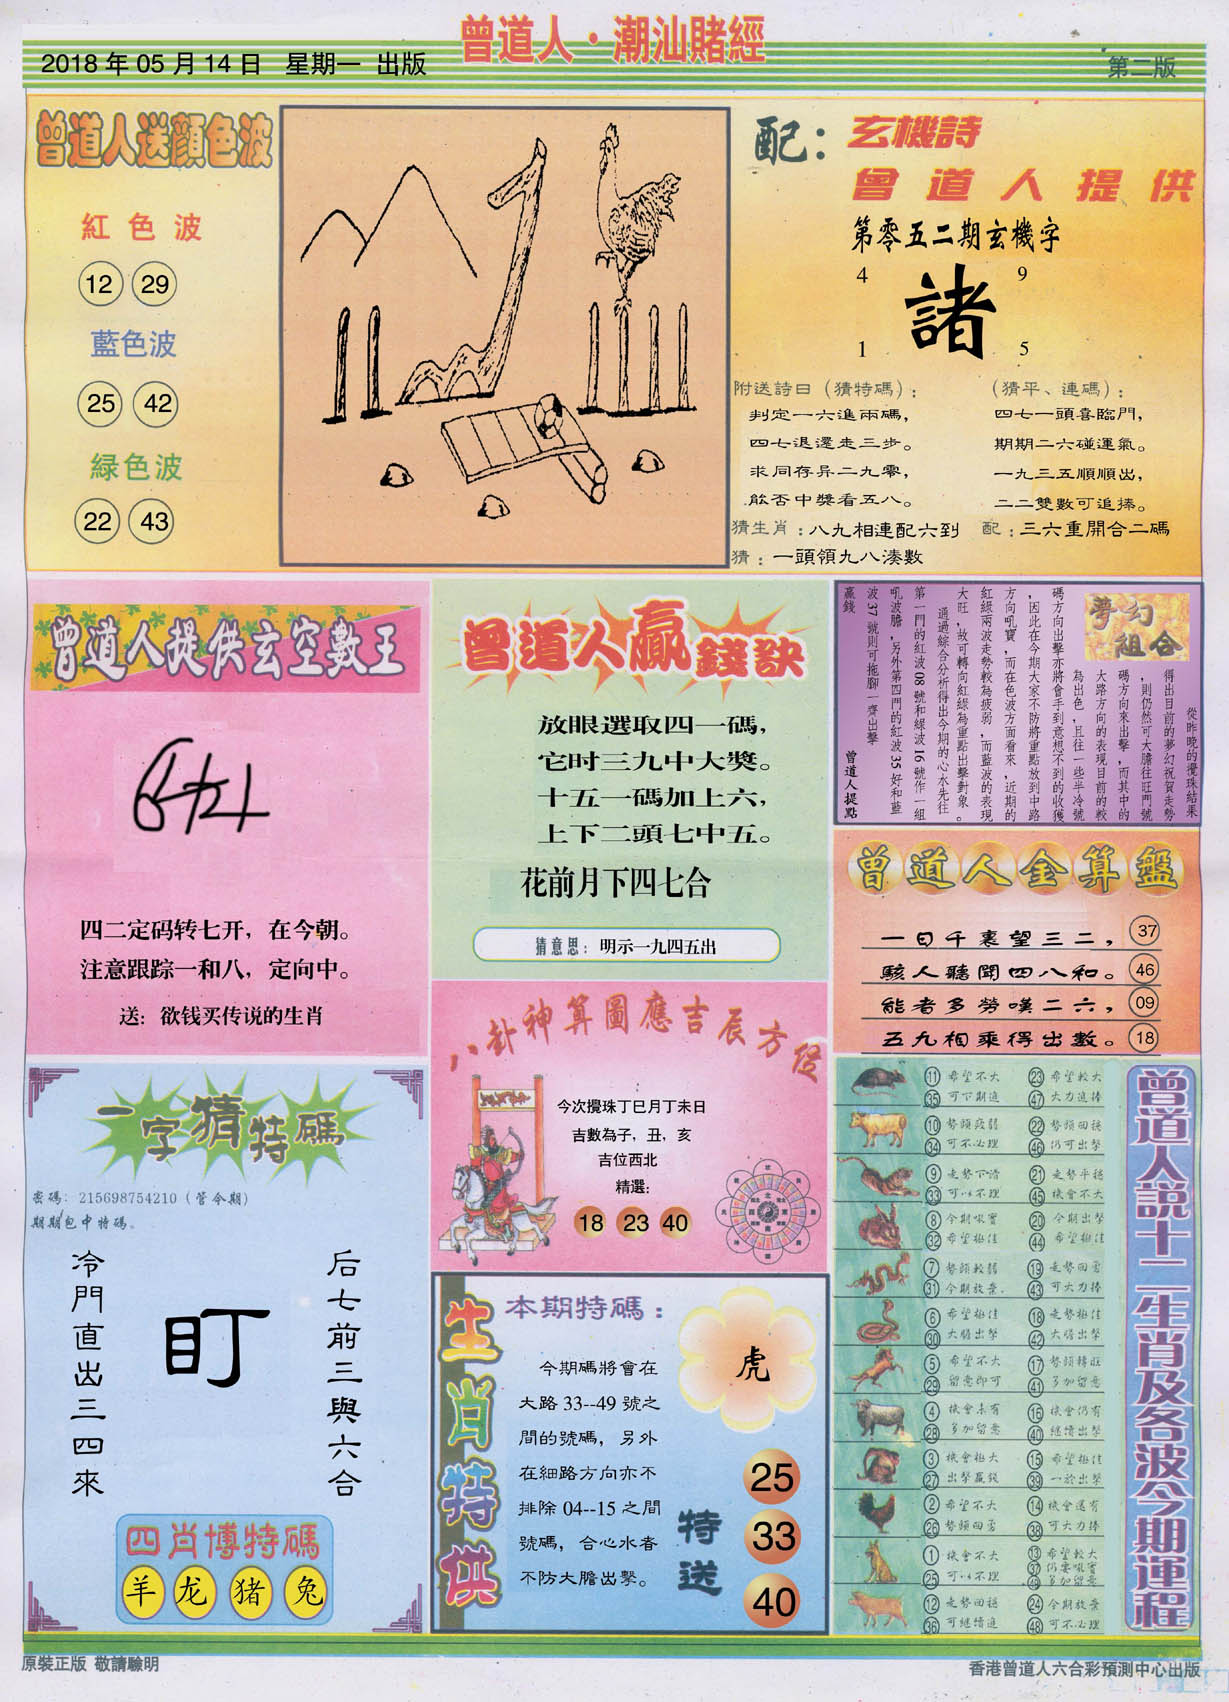 曾道人·潮汕賭經
2018 年 05 月 14 日 星期一 出版
第二版
曾道人送顏色波
紅色波
12 29
藍色波
25 42
緑色波
22 43
配：玄機詩
曾道人提供
第零五二期玄機字
4 9
諸
1 5
附送詩曰（猜特碼）：
判定一六進兩碼，
四七退還走三步。
求同存异二九零，
能否中獎看五八。
（猜平、連碼）：
四七一頭喜臨門，
期期二六碰運氣。
一九三五順順出，
二二雙數可追捧。
猜生肖：八九相連配六到
配：三六重開合二碼
猜：一頭領九八湊數
曾道人提供玄空數王
四二定码转七开，在今朝。
注意跟踪一和八，定向中。
送：欲钱买传说的生肖
曾道人贏錢訣
放眼選取四一碼，
它时三九中大獎。
十五一碼加上六，
上下二頭七中五。
花前月下四七合
猜意思：明示一九四五出
夢幻組合
從昨晚的攪珠結果
得出目前的夢幻祝賀走勢
，則仍然可大膽往旺門號
碼方向來出擊，而其中的
大路方向的表現目前的較
為出色，且往一些半冷號
碼方向出擊亦將會手到意想不到的收獲
，因此在今期大家不防將重點放到中路
方向吼寶，而在色波方面看來，近期的
紅綠兩波走勢較為疲弱，而藍波的表現
大旺，故可轉向紅綠為重點出擊對象。
通過綜合分析得出今期的心水先往
第一門的紅波 08 號和緑波 16 號作一組
吼波膽，另外第四門的紅波 35 好和藍
波 37 號則可拖腳一齊出擊
贏錢
曾道人提點
曾道人金算盤
一日千裏望三二， 37
駭人聽聞四八和。 46
能者多勞嘆二六， 09
五九相乘得出數。 18
八卦神算圖應吉辰方位
今次攪珠丁巳月丁未日
吉數為子，丑，亥
吉位西北
精選：
18 23 40
一字猜特碼
密碼：215698754210（管今期）
期期包中特碼。
冷門直出三四來
盯
后七前三與六合
四肖博特碼
羊 龙 猪 兔
生肖特供
本期特碼：
今期碼將會在
大路 33--49 號之
間的號碼，另外
在細路方向亦不
排除 04--15 之間
號碼，合心水者
不防大膽出擊。
虎
特送
25
33
40
曾道人説十二生肖及各波今期運程
11 希望不大 23 希望較大
35 可下期追 47 大力追捧
10 勢頭疲弱 22 勢頭回穩
34 可不必理 46 仍可出擊
9 走勢下滑 21 走勢平穩
33 可以不理 45 機會不大
8 今期吼寶 20 今期出擊
32 希望極佳 44 希望極佳
7 勢頭較弱 19 走勢回勇
31 今期放棄 43 可大力捧
6 希望極佳 18 走勢極佳
30 大膽出擊 42 大膽出擊
5 希望不大 17 勢頭轉旺
29 留意即可 41 多加留意
4 機會未有 16 機會仍有
28 多加留意 40 繼續出擊
3 機會極大 15 希望極佳
27 出擊贏錢 39 一於出擊
2 希望不大 14 機會還有
26 勢頭回勇 38 可大力捧
1 機會不大 13 希望較大
25 可以不理 37 仍要吼實
49 多加留意
12 走勢回穩 24 今期放棄
36 可繼續追 48 可不必理
原裝正版 敬請驗明
香港曾道人六合彩預測中心出版